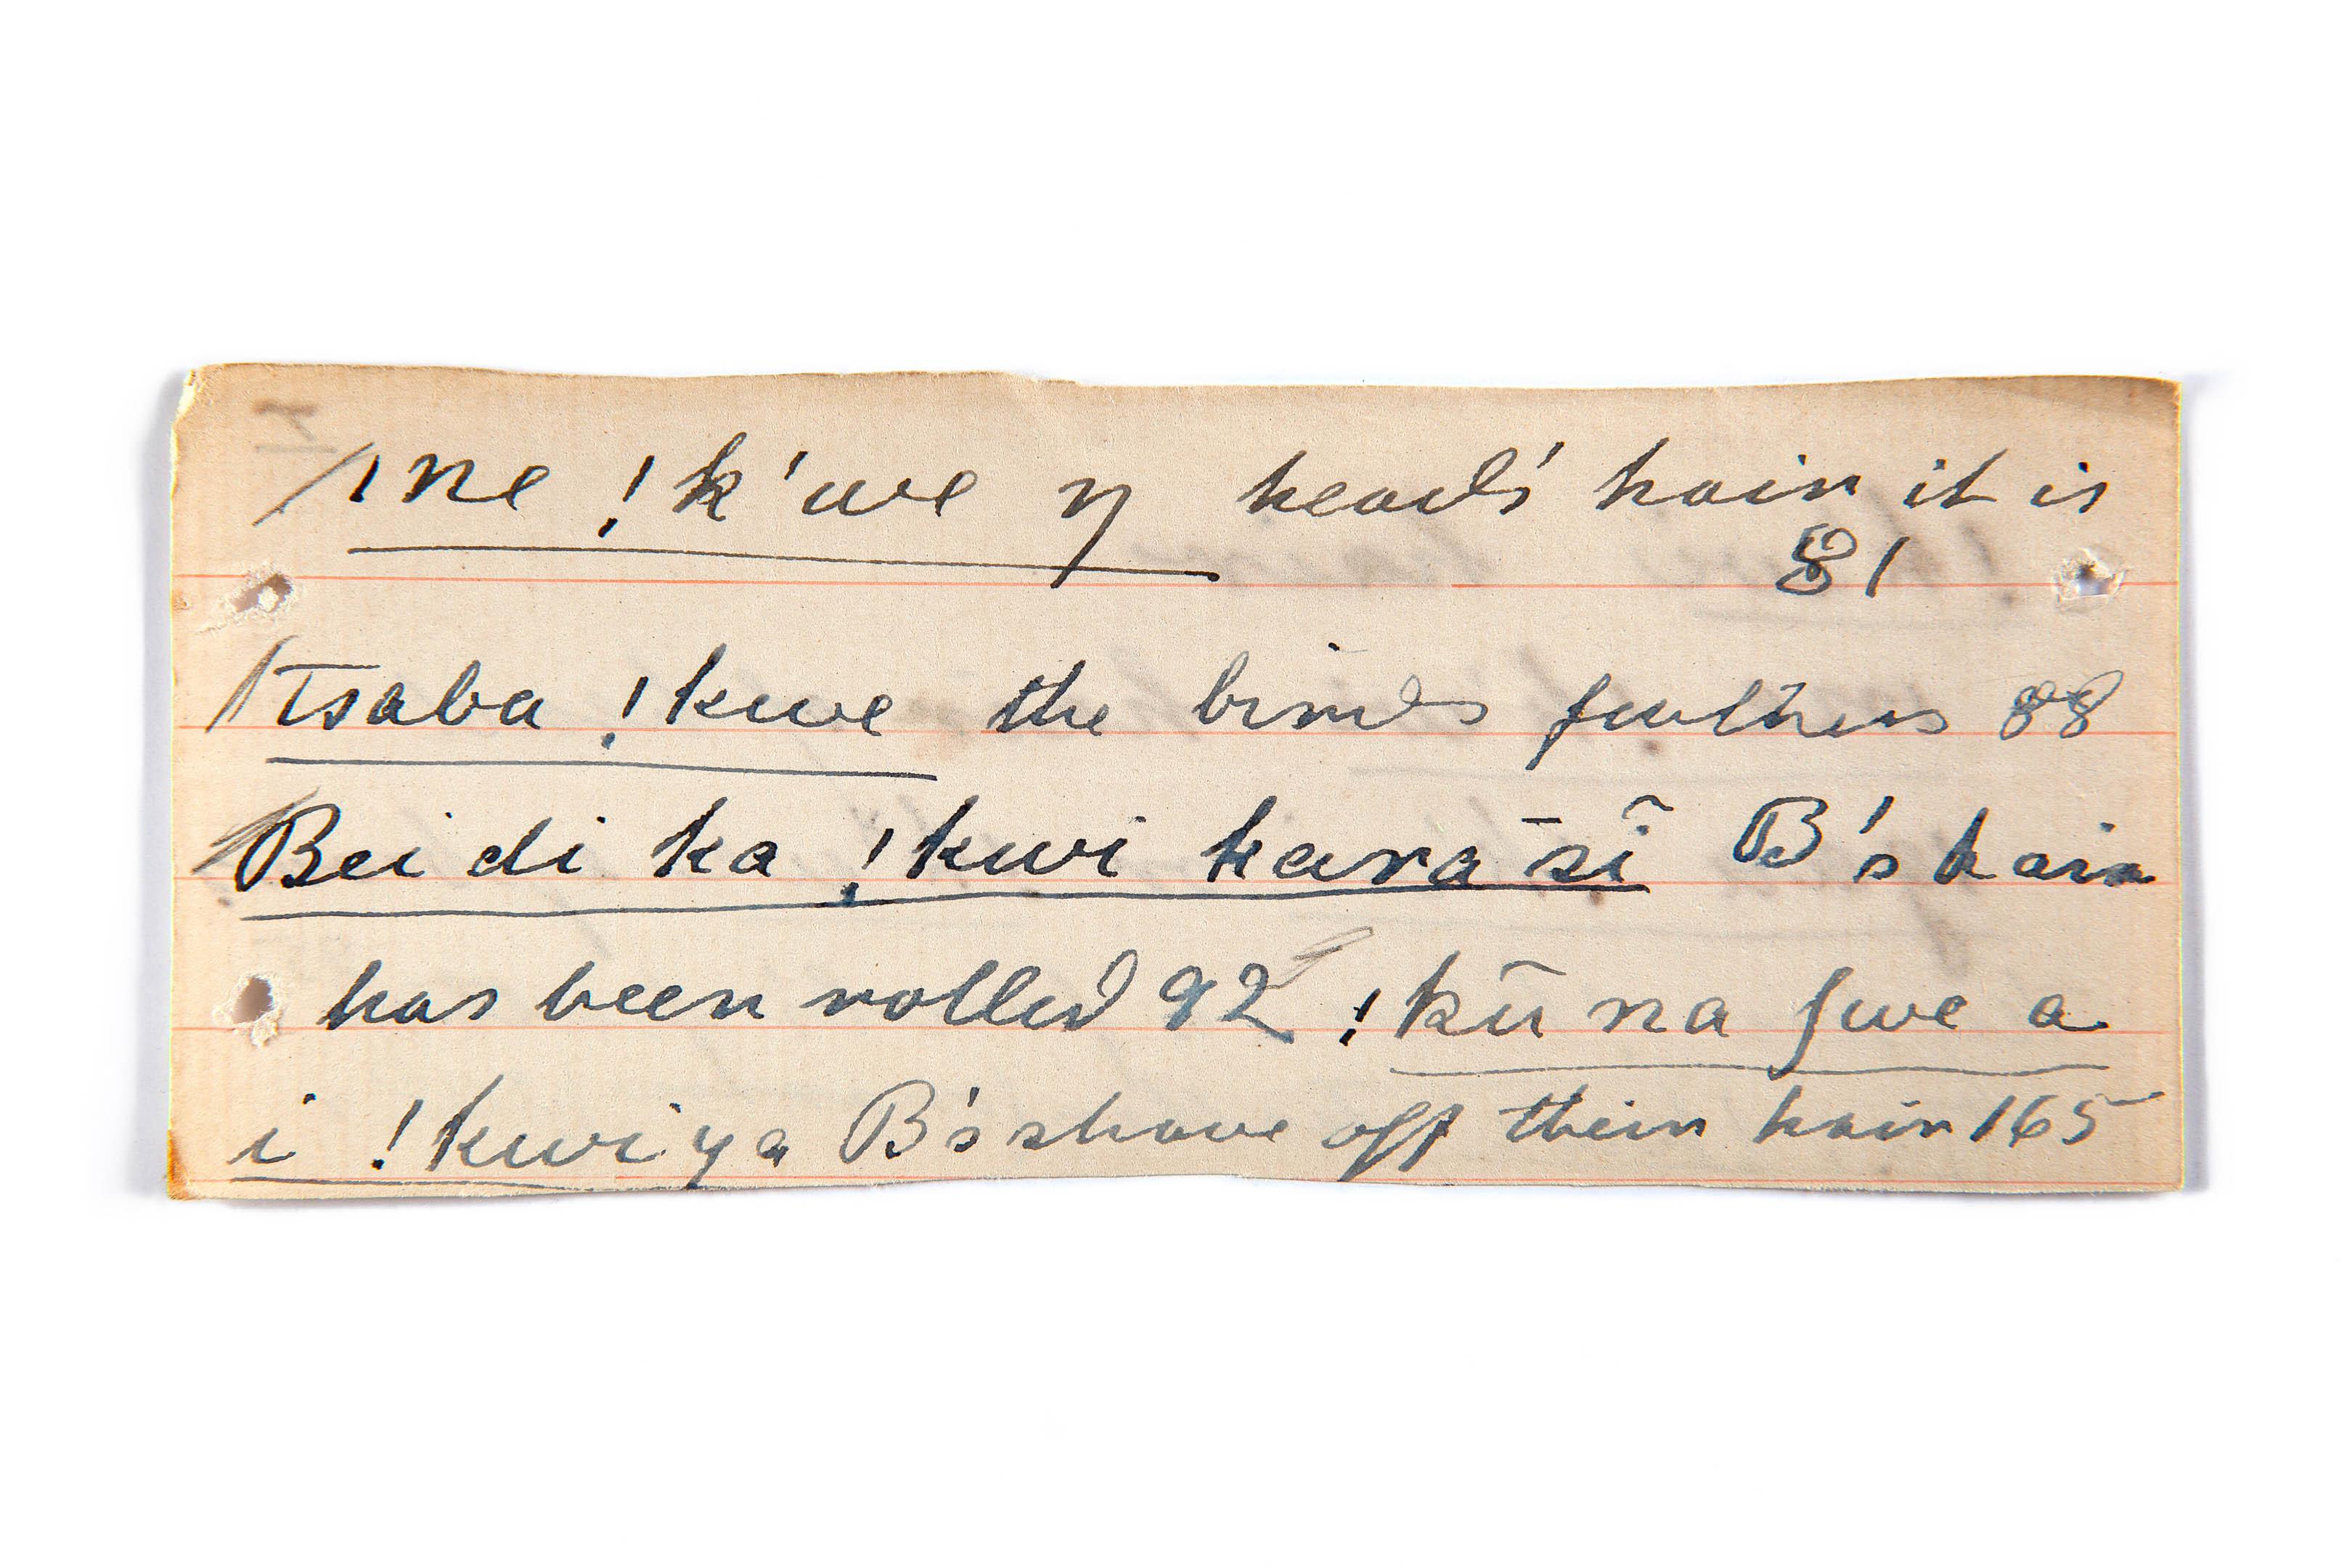 /ıne !k'we ŋ heads' hair it is
81
/Tsaba !kwe the birds feathers 88
Bei di ka !kwi kara sĩ B's hair
has been rolled 92 !kū na ʃwe a
i !kwi ya B's shave off their hair 165